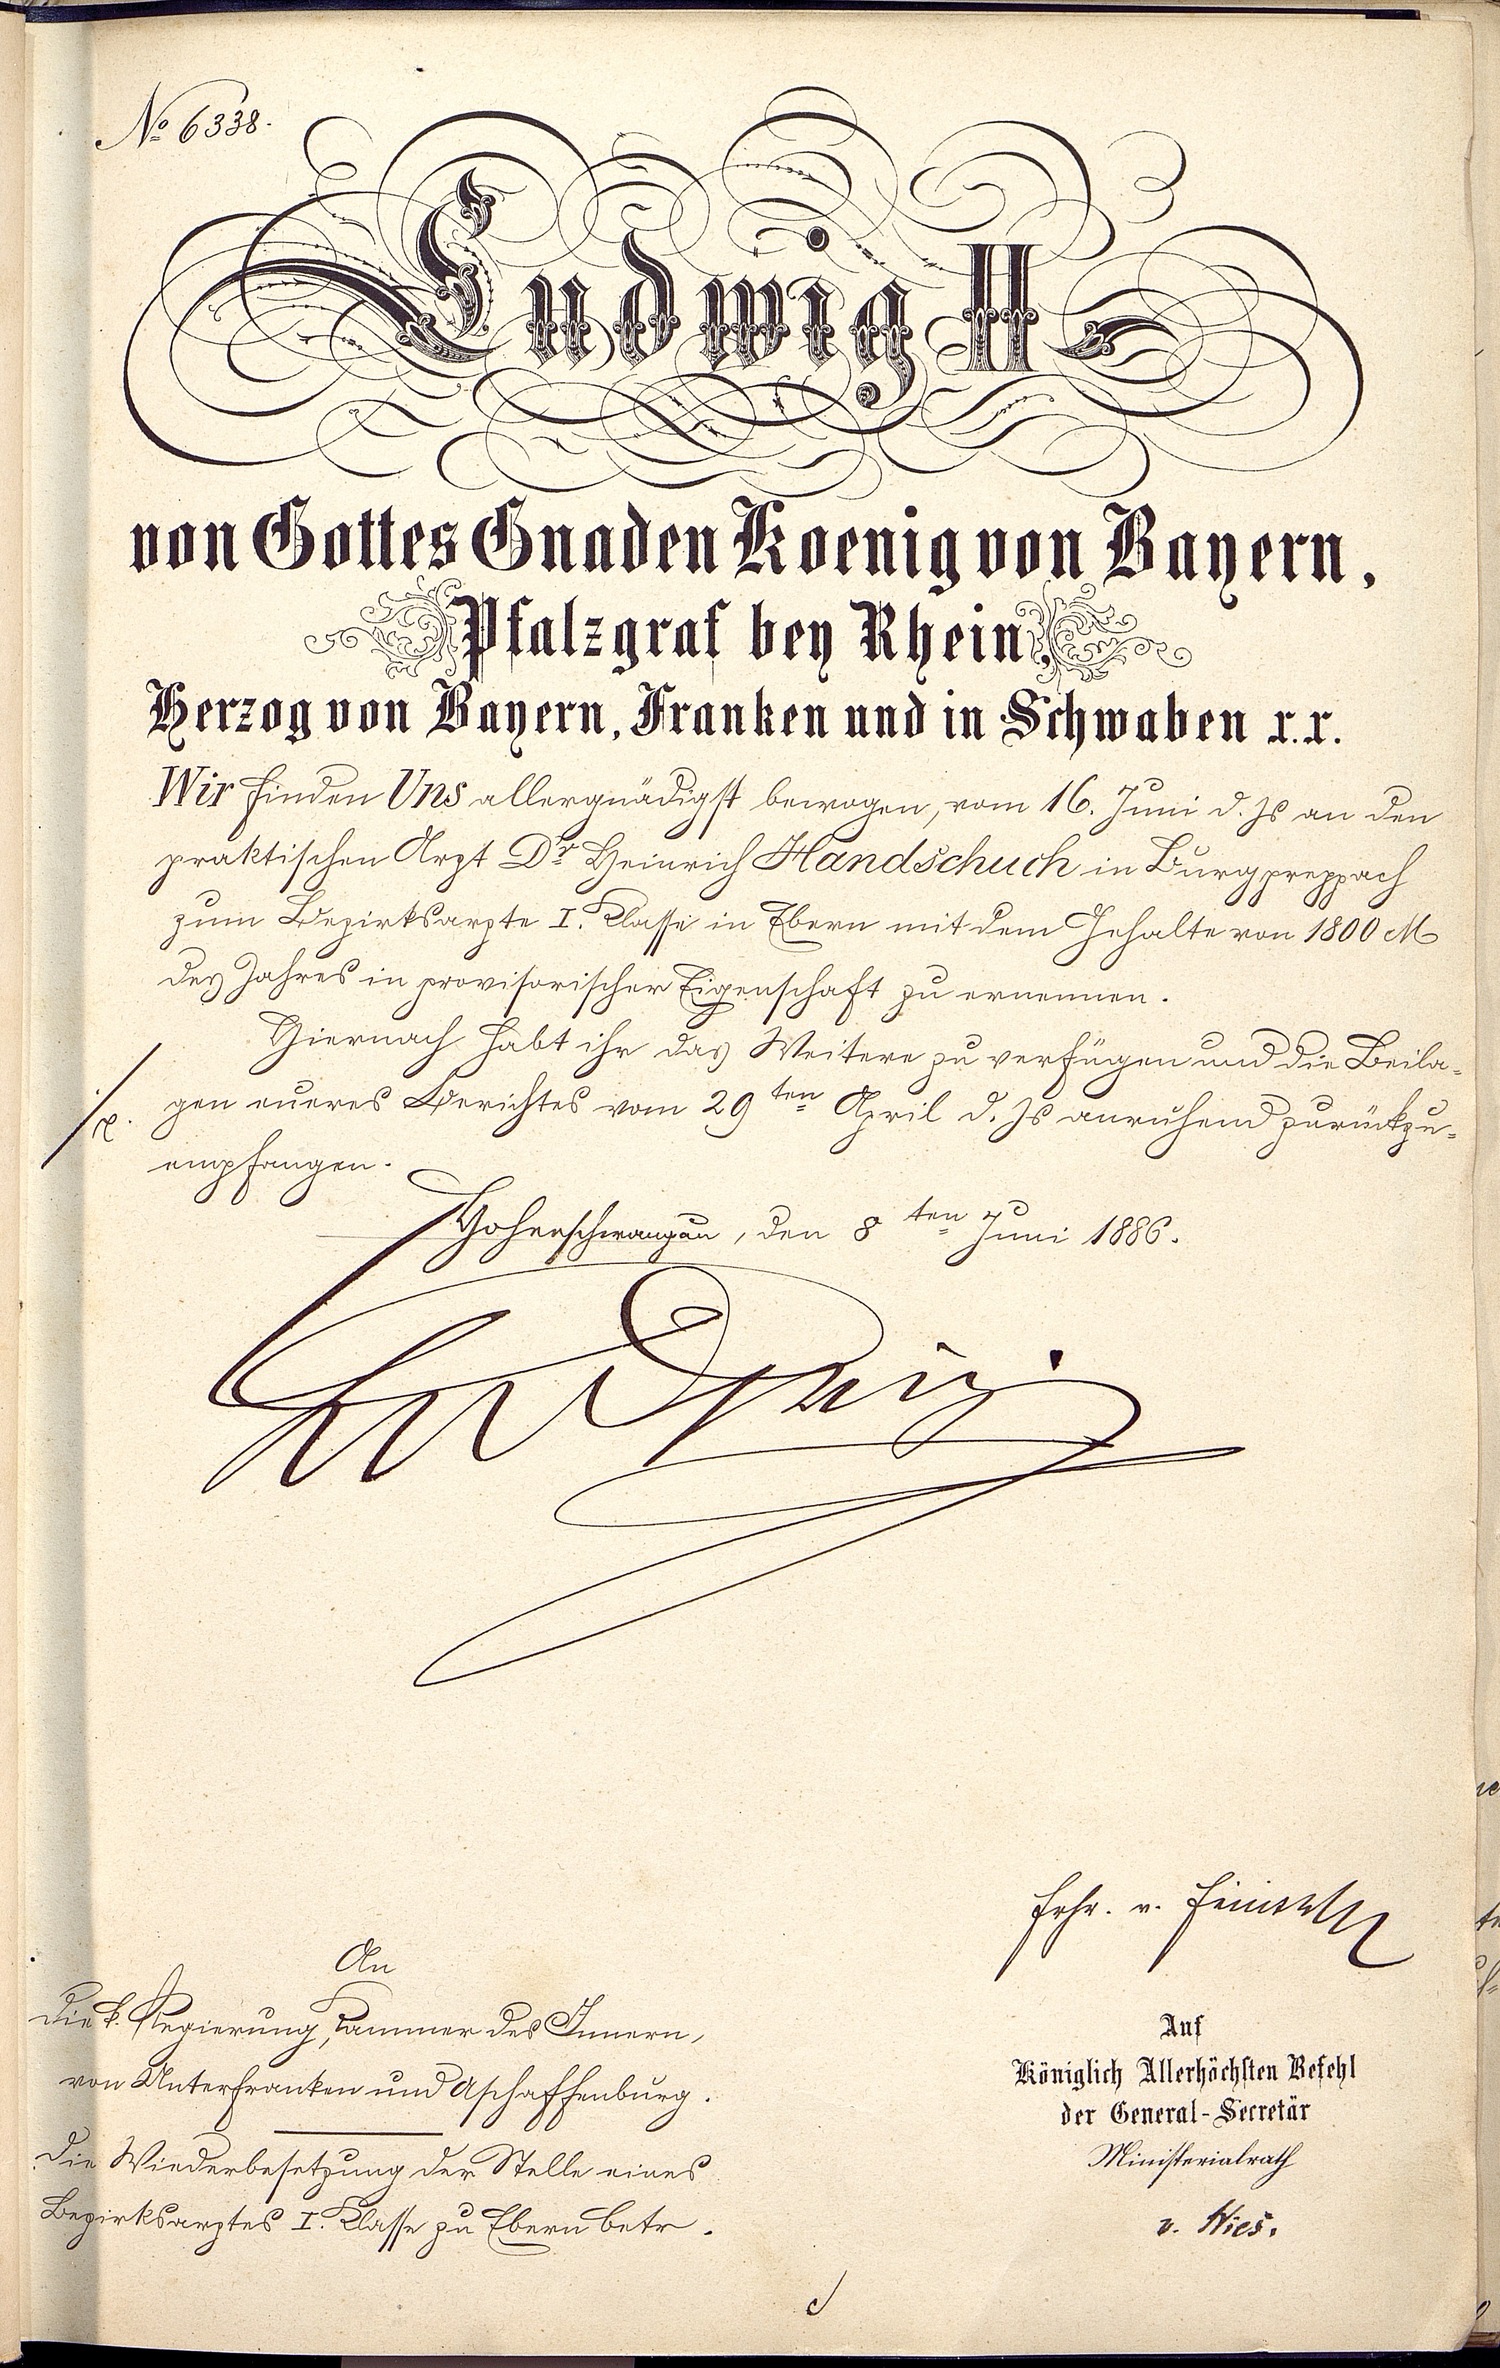 No 6338.
Ludwig II
von Gottes Gnaden Koenig von Bayern,
Pfalzgraf bey Rhein,
Herzog von Bayern, Franken und in Schwaben r.r.
Wir finden Uns allergnädigst bewogen, vom 16. Juni d. Js an den
praktischen Arzt Dr Heinrich Handschuch in Burgpreppach
zum Bezirksarzte I. Klasse in Ebern mit dem Gehalte von 1800 M
des Jahres in provisorischer Eigenschaft zu ernennen.
Hiernach habt ihr das Weitere zu verfügen und die Beila-
gen eueres Berichtes vom 29ten April d. Js anruhend zurückzu-
empfangen.
Hohenschwangau, den 8ten Juni 1886.
Ludwig
Frhr. v. Feilitzsch
An
die k. Regierung, Kammer des Innern,
von Unterfranken und Aschaffenburg.
Die Wiederbesetzung der Stelle eines
Bezirksarztes I. Klasse zu Ebern betr.
Auf
Königlich Allerhöchsten Befehl
der General-Secretär
Ministerialrath
v. Nies.